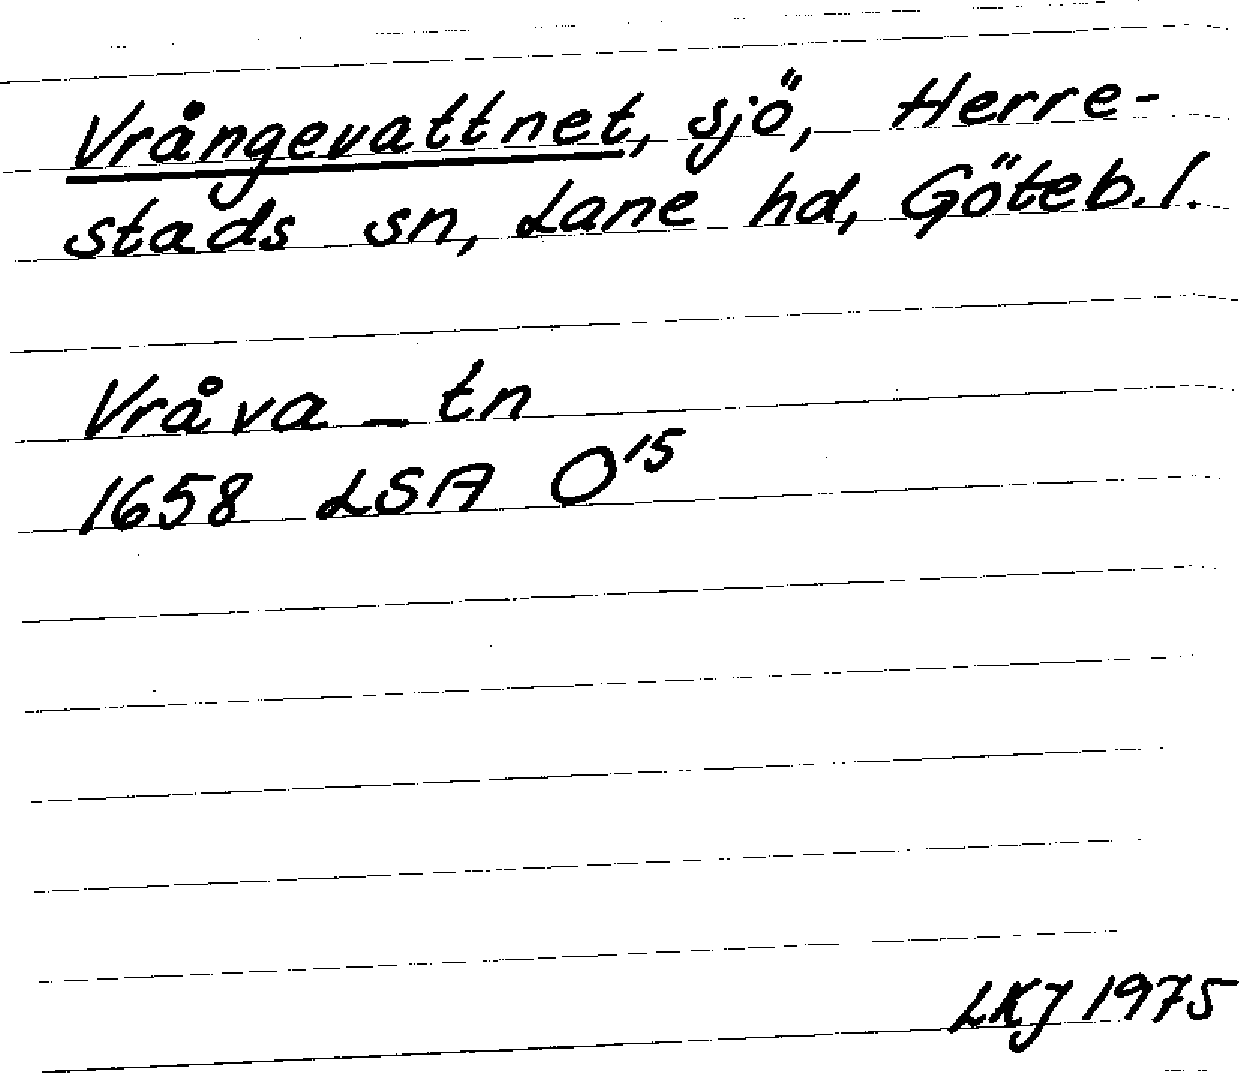 Vrångevattnet, sjö, Herre-
stads sn, Lane hd, Göteb. l.
Vråva_tn
1658 LSA O15
LKJ 1975